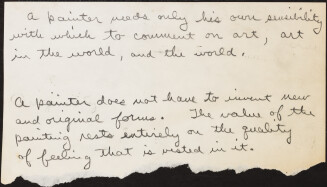 A painter needs only his own sensibility
with which to comment on art, art
in the world, and the world.
A painter does not have to invent new
and original forms. The value of the
painting rests entirely on the quality
of feeling that is vested in it.